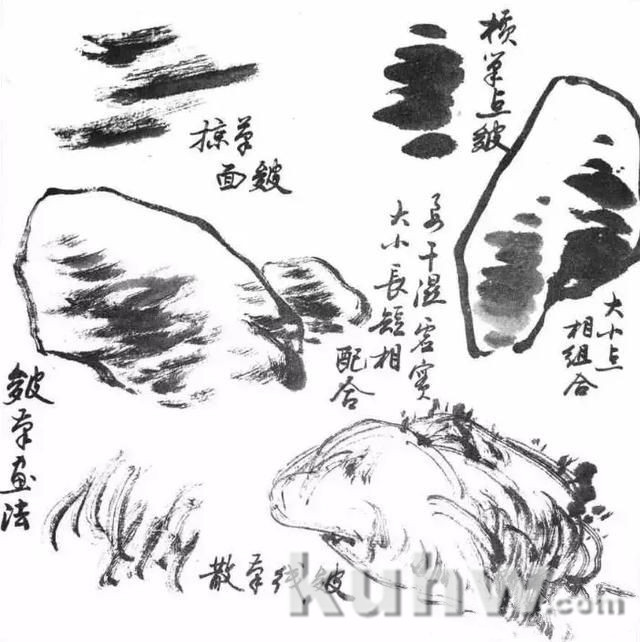 掠笔
面皴
横笔点皴
要干湿虚实
大小長短相
配合
大小点
相组合
皴笔画法
散笔线皴
kuhw.com